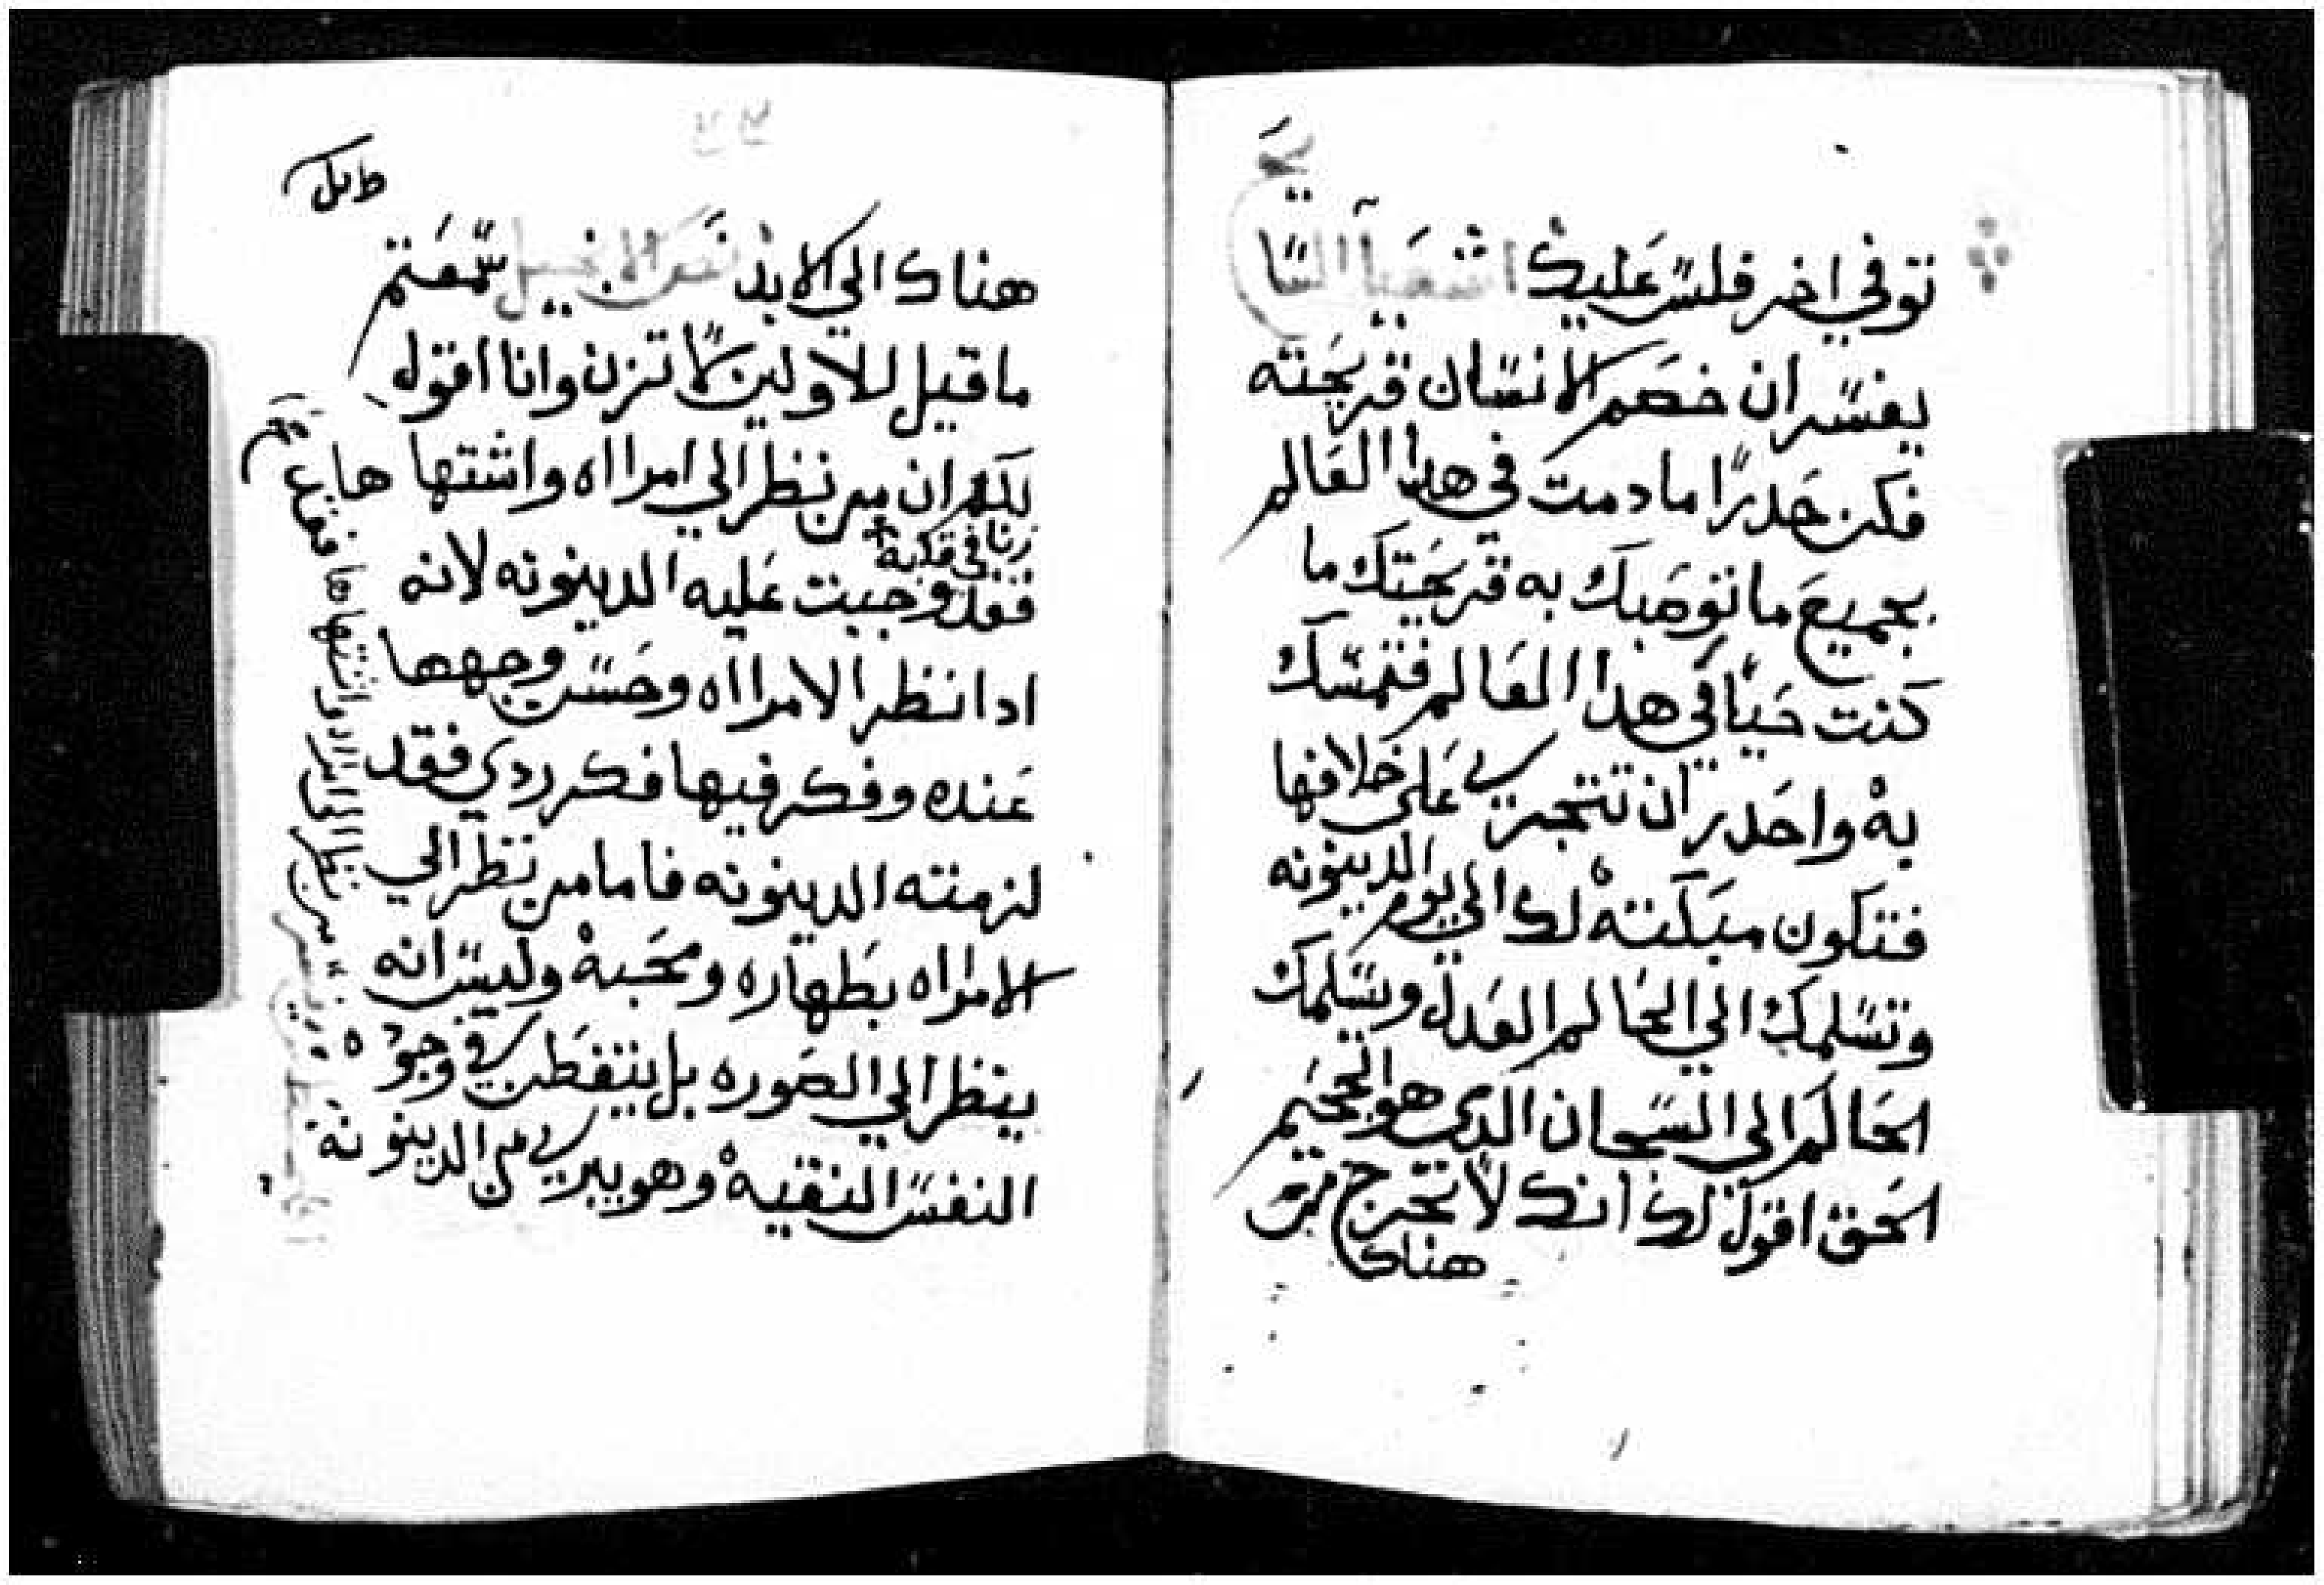 توفي اخر فلس عليك اشعيا السا
يفسر ان خصم الانسان قريحته
فكن حدرا ما دمت في هدا العالم
بجميع ما توحبك به قريحتك ما
كنت حيا في هدا العالم فتمسك
به واحدر ان تتجري علي خلافها
فتكون مبكته لك الي يوم الدينونه
وتسلمك الي الحالم العدل ويسلمك
الحالم الي السجان الدي هو الجحيم
الحق اقول لك انك لا تخرج من
هناك
هناك الي الابد نص الانجيل سمعتم
ما قيل للاولين لا تزن وانا اقول
لكم ان من نظر الي امرااه واشتها ها
زنا في قلبه
فقد وجبت عليه الدينونه لانه
ادا نظر الامرااه وحسن وجهها
عنده وفكر فيها فكر ردي فقد
لزمته الدينونه فاما من نظر الي
الامراه بطهاره ومحبه وليس انه
ينظر الي الصوره بل يتفطن في وجوه
النفس النقيه وهو بري من الدينونه